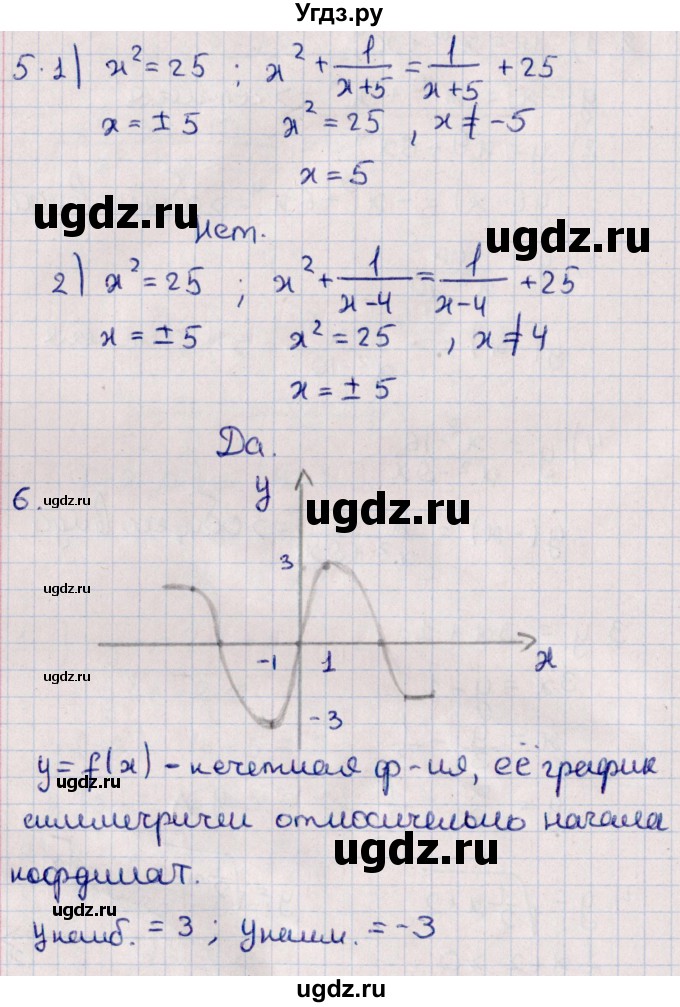 Угдз.ру
5.1) x² = 25 ; x² + 1/(x+5) = 1/(x+5) + 25
x = ± 5   x² = 25 , x ≠ -5
x = 5
ugdz.ru
Нет.
ugdz.ru
2) x² = 25 ; x² + 1/(x-4) = 1/(x-4) + 25
x = ± 5   x² = 25 , x ≠ 4
x = ± 5
Да.
6.
ugdz.ru
y
ugdz.ru
3
ugdz.ru
-1 1 x
ugdz.ru
-3
y = f(x) - нечетная ф-ия, её график
ugdz.ru
симметричен относительно начала
ugdz.ru
координат.
ugdz.ru
yнаиб. = 3 ; yнаим. = -3
ugdz.ru